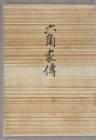 六角家傳